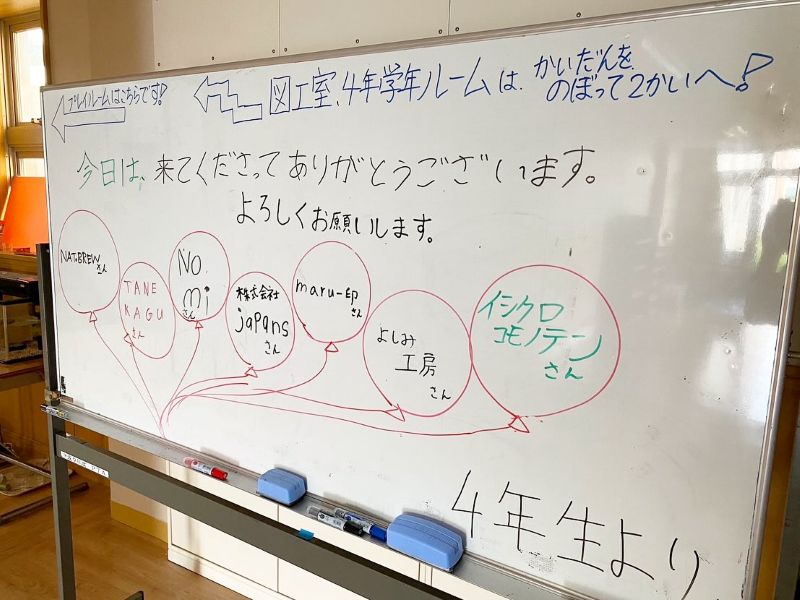 プレイルームはこちらです!
図工室、4年学年ルームは、かいだんを
のぼって2かいへ!
今日は、来てくださってありがとうございます。
よろしくお願いします。
NAT.BREW
さん
TANE
KAGU
さん
No.
mi
さん
株式会社
japans
さん
maru-印
さん
よしみ
工房
さん
イシクロ
コモノテン
さん
4年生より